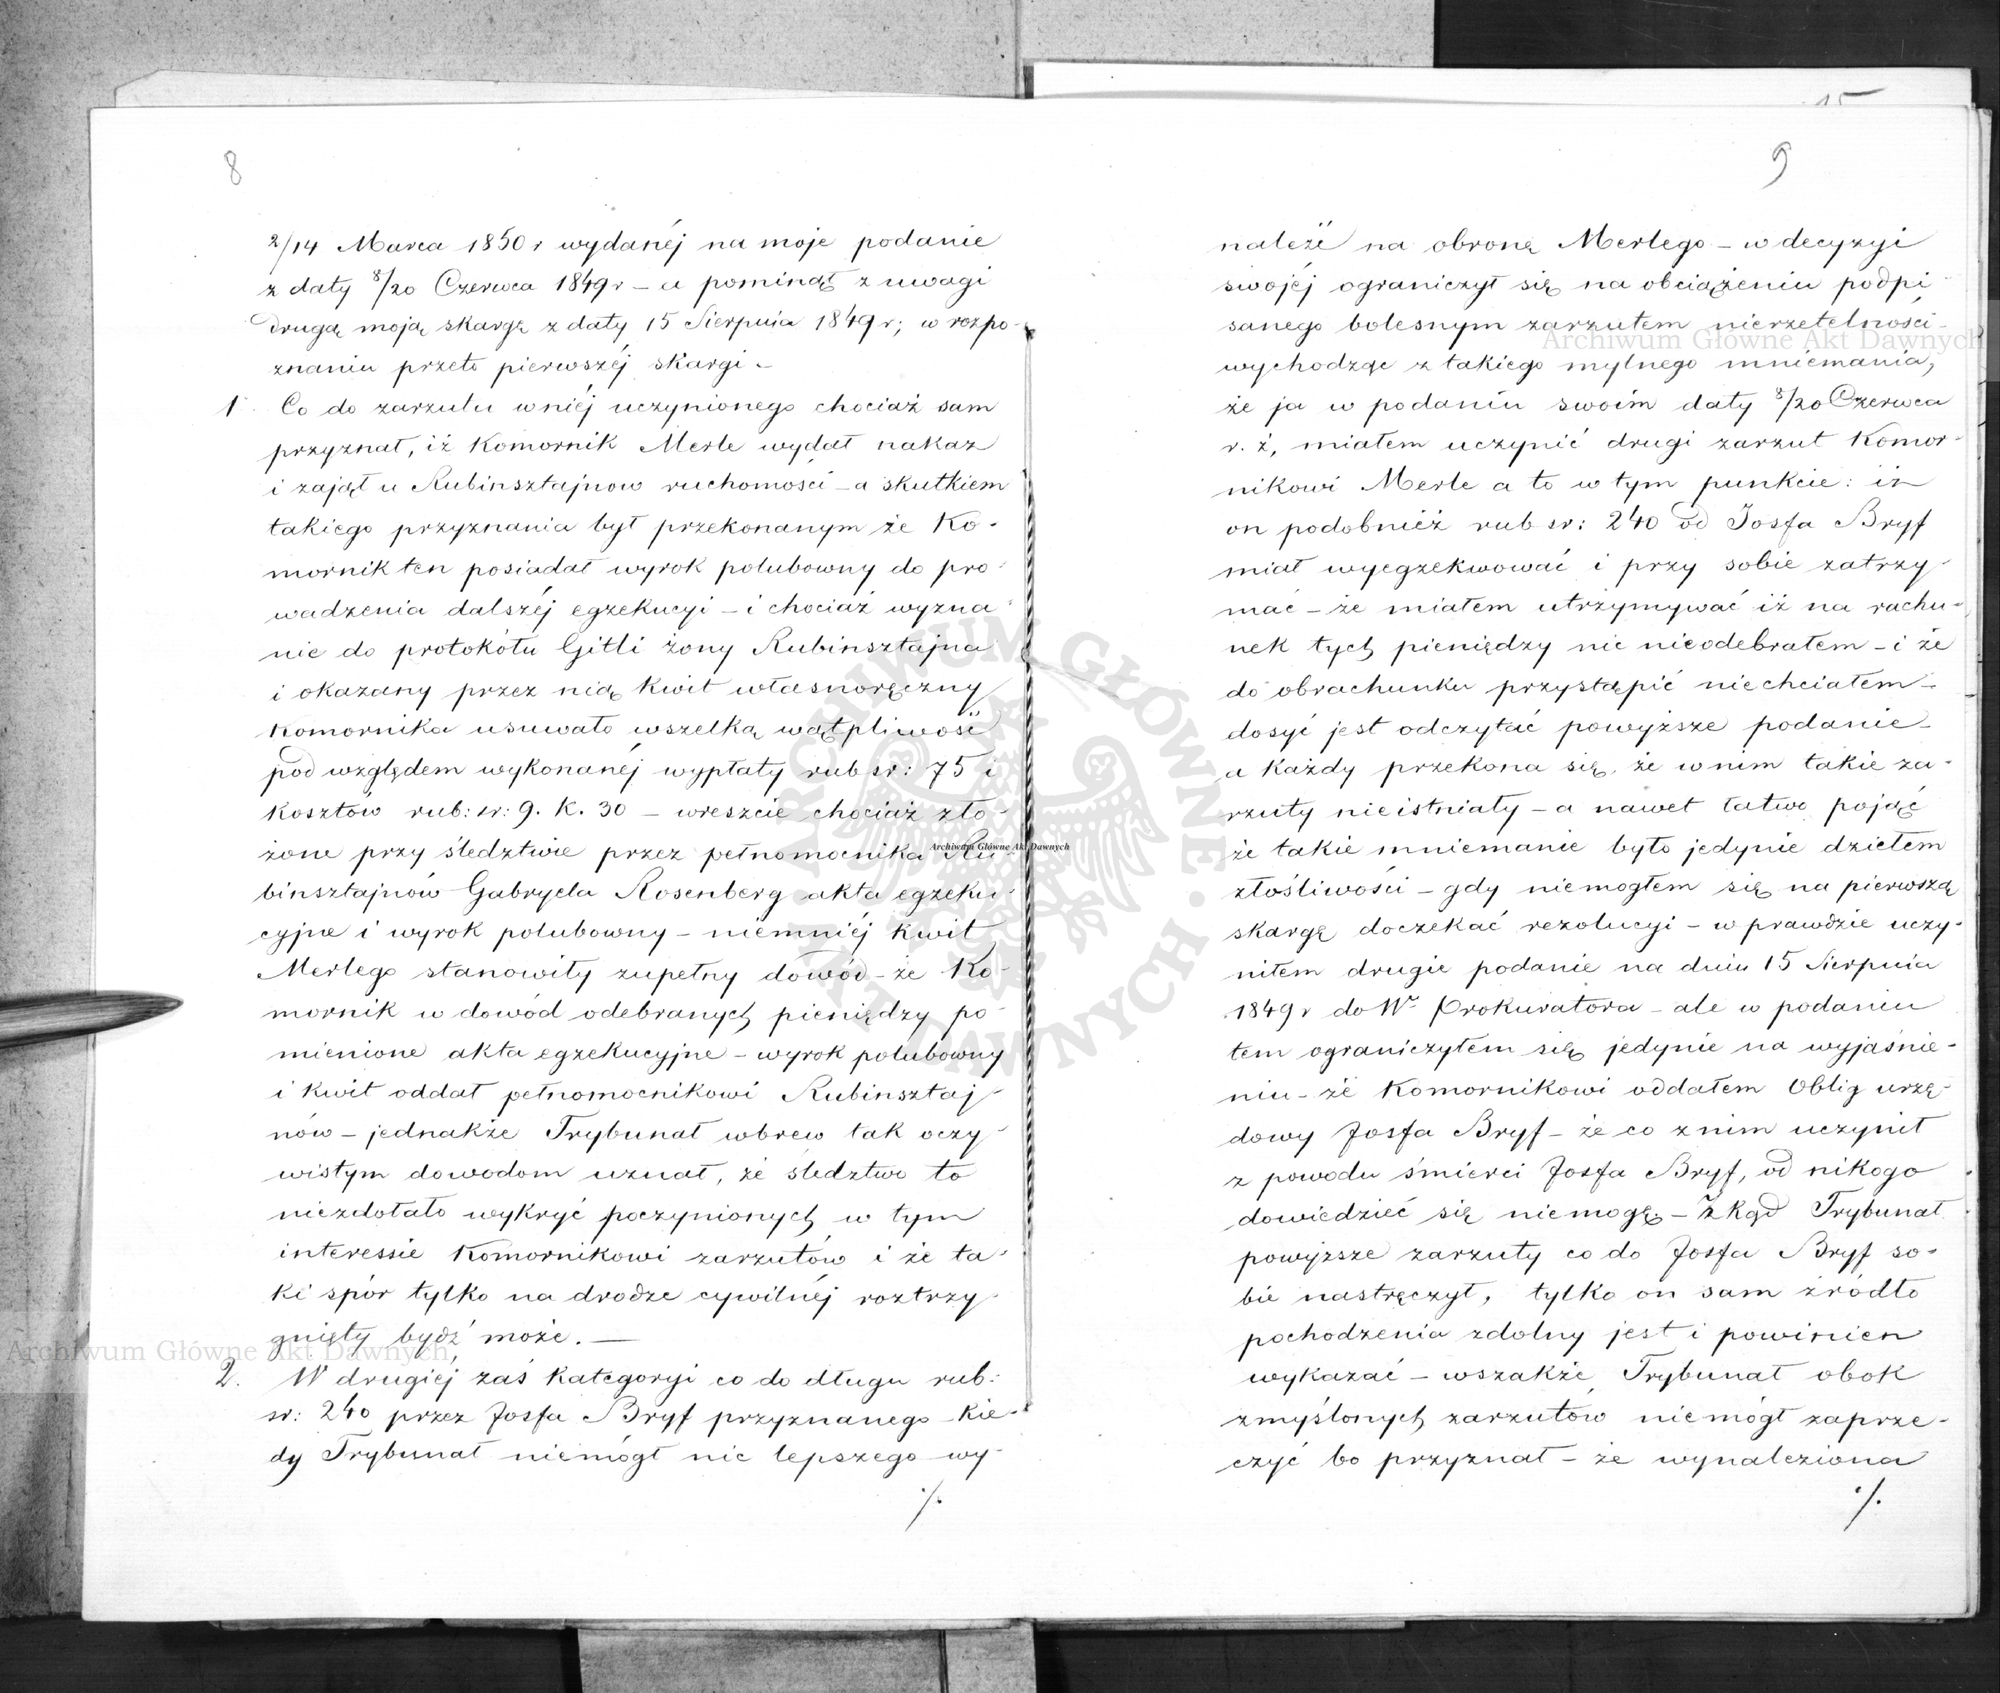 8
2/14 Marca 1850 r wydanéj na moje podanie
z daty 8/20 Czerwca 1849 r – a pominął z uwagi
drugą moją skargę z daty 15 Sierpnia 1849 r; w rozpo-
znaniu przeto pierwszéj skargi –
1. Co do zarzutu w niéj uczynionego chociaż sam
przyznał, iż Komornik Merle wydał nakaz
i zajął u Rubinsztajnow ruchomości – a skutkiem
takiego przyznania był przekonanym że Ko-
mornik ten posiadał wyrok polubowny do pro-
wadzenia dalszéj egzekucyi – i chociaż wyzna-
nie do protokółu Gitli żony Rubinsztajna
i okazany przez nią kwit własnoręczny
Komornika usuwało wszelką wątpliwość
pod względem wykonanéj wypłaty rub sr: 75 i
kosztów rub: sr: 9. K. 30 – wreszcie chociaż zło-
żone przy śledztwie przez pełnomocnika Ru-
binsztajnów Gabryela Rosenberg akta egzeku-
cyjne i wyrok polubowny – niemniéj kwit
Merlego stanowiły zupełny dowód – że Ko-
mornik w dowód odebranych pieniędzy po-
mienione akta egzekucyjne – wyrok polubowny
i kwit oddał pełnomocnikowi Rubinsztaj-
nów – jednakże Trybunał wbrew tak oczy-
wistym dowodom uznał, że śledztwo to
niezdołało wykryć poczynionych w tym
interessie Komornikowi zarzutów i że ta-
ki spór tylko na drodze cywilnéj roztrzy-
gnięty bydź może. –
2. W drugiéj zaś kategoryi co do długu rub:
sr: 240 przez Josfa Bryf przyznanego – kie-
dy Trybunał niemógł nic lepszego wy-
./.
9
naleźć na obronę Merlego – w decyzyi
swojéj ograniczył się na obciążeniu podpi-
sanego bolesnym zarzutem nierzetelności –
wychodząc z takiego mylnego mniemania,
że ja w podaniu swoim daty 8/20 Czerwca
r. ż, miałem uczynić drugi zarzut Komor-
nikowi Merle a to w tym punkcie: iż
on podobnież rub sr: 240 od Josfa Bryf
miał wyegzekwować i przy sobie zatrzy-
mać – że miałem utrzymywać iż na rachu-
nek tych pieniędzy nic nieodebrałem – i że
do obrachunku przystąpić niechciałem –
dosyć jest odczytać powyższe podanie –
a każdy przekona się, że w nim takie za-
rzuty nieistniały – a nawet łatwo pojąć
że takie mniemanie było jedynie dziełem
złośliwości – gdy niemogłem się na pierwszą
skargę doczekać rezolucyi – w prawdzie uczy-
niłem drugie podanie na dniu 15 Sierpnia
1849 r do Wo Prokuratora – ale w podaniu
tem ograniczyłem się jedynie na wyjaśnie-
niu – że Komornikowi oddałem Oblig urzę-
dowy Josfa Bryf – że co z nim uczynił
z powodu śmierci Josfa Bryf, od nikogo
dowiedzieć się niemogę. – Zkąd Trybunał
powyższe zarzuty co do Josfa Bryf so-
bie nastręczył, tylko on sam źródło
pochodzenia zdolny jest i powinien
wykazać – wszakże Trybunał obok
zmyślonych zarzutów niemógł zaprze-
czyć bo przyznał – że wynaleziona
./.
15
Archiwum Główne Akt Dawnych
Archiwum Główne Akt Dawnych
Archiwum Główne Akt Dawnych
ARCHIWUM GŁÓWNE AKT DAWNYCH